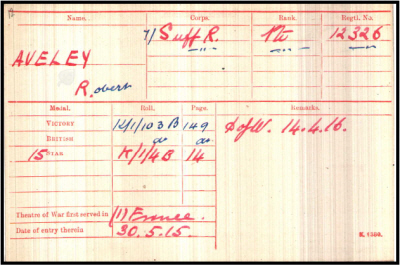 Name. Corps. Rank. Regtl. No.
7/ Suff R. Pte 12326
AVELEY -"- -"- -"-
Robert
Medal. Roll. Page. Remarks.
VICTORY K/1/103 B 149 D of W. 14.4.16.
BRITISH do do
15 STAR K/1/4B 14
Theatre of War first served in (1) France.
Date of entry therein 30.5.15. K. 1380.